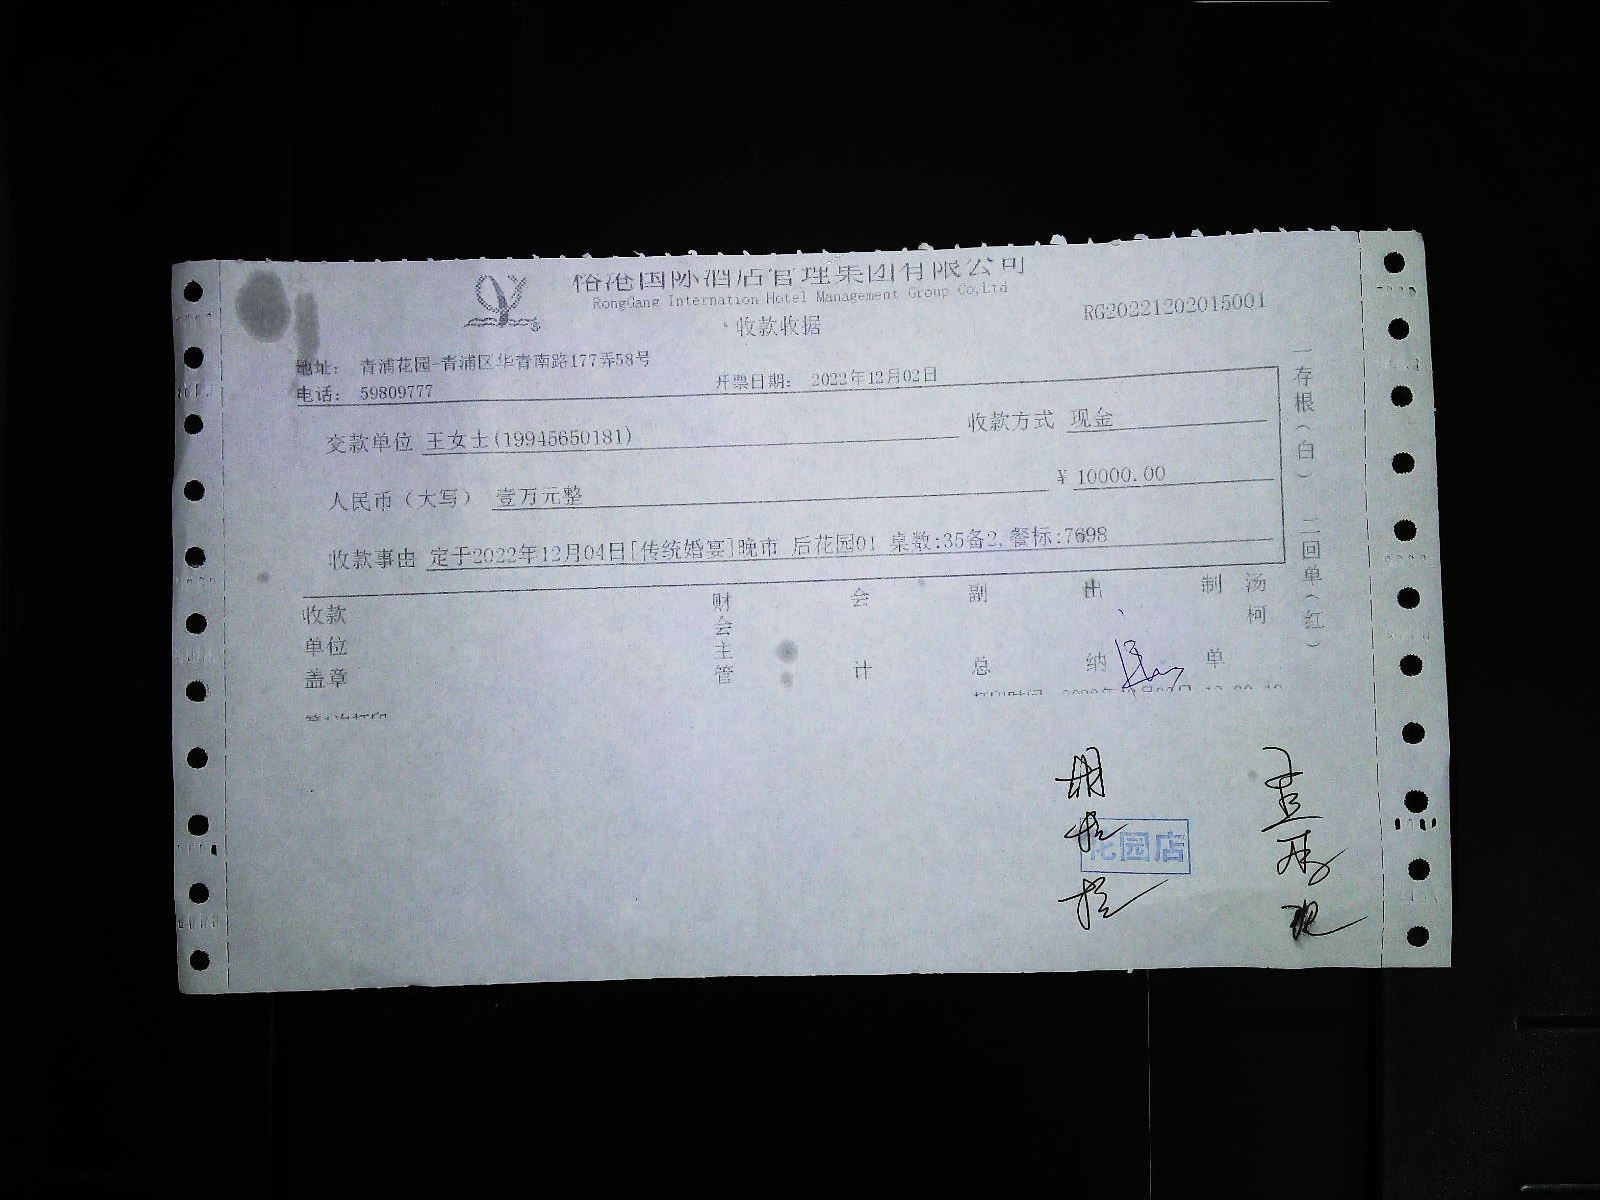 国际酒店管理集团有限公司
RongGang Internation Hotel Management Group Co,Ltd
收款收据
RG20221202015001
地址： 青浦花园-青浦区华青南路177弄58号
电话： 59809777
开票日期： 2022年12月02日
交款单位 王女士(19945650181)
收款方式 现金
人民币（大写） 壹万元整
￥10000.00
收款事由 定于2022年12月04日[传统婚宴]晚市 后花园01 桌数:35备2,餐标:7698
收款单位盖章
财会主管
会计
副总
出纳
制单
汤柯
一存根（白） 二回单（红）
花园店